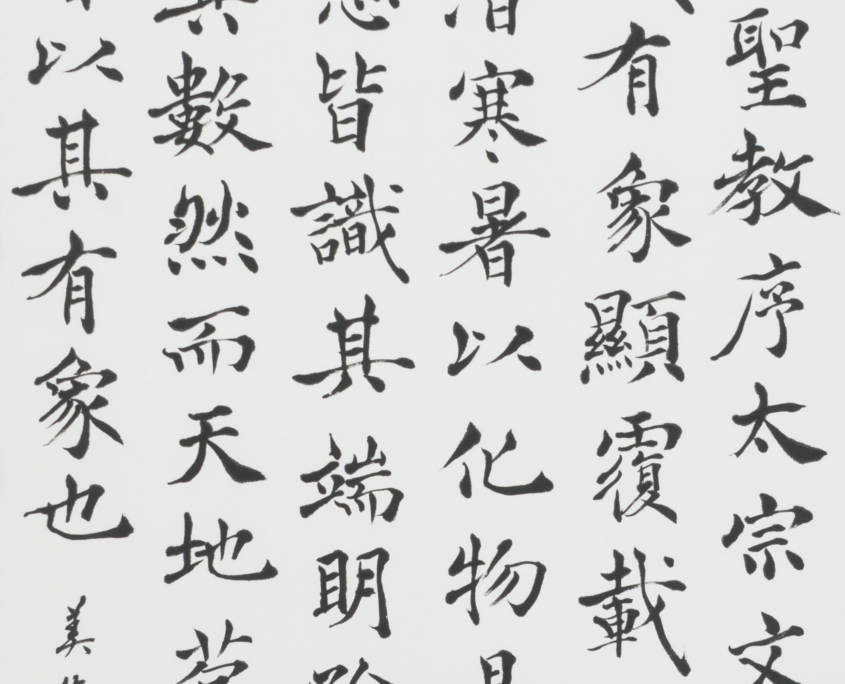 聖教序太宗文
有象顯覆載
寒暑以化物
皆識其端明
其數然而天地
以其有象也
美